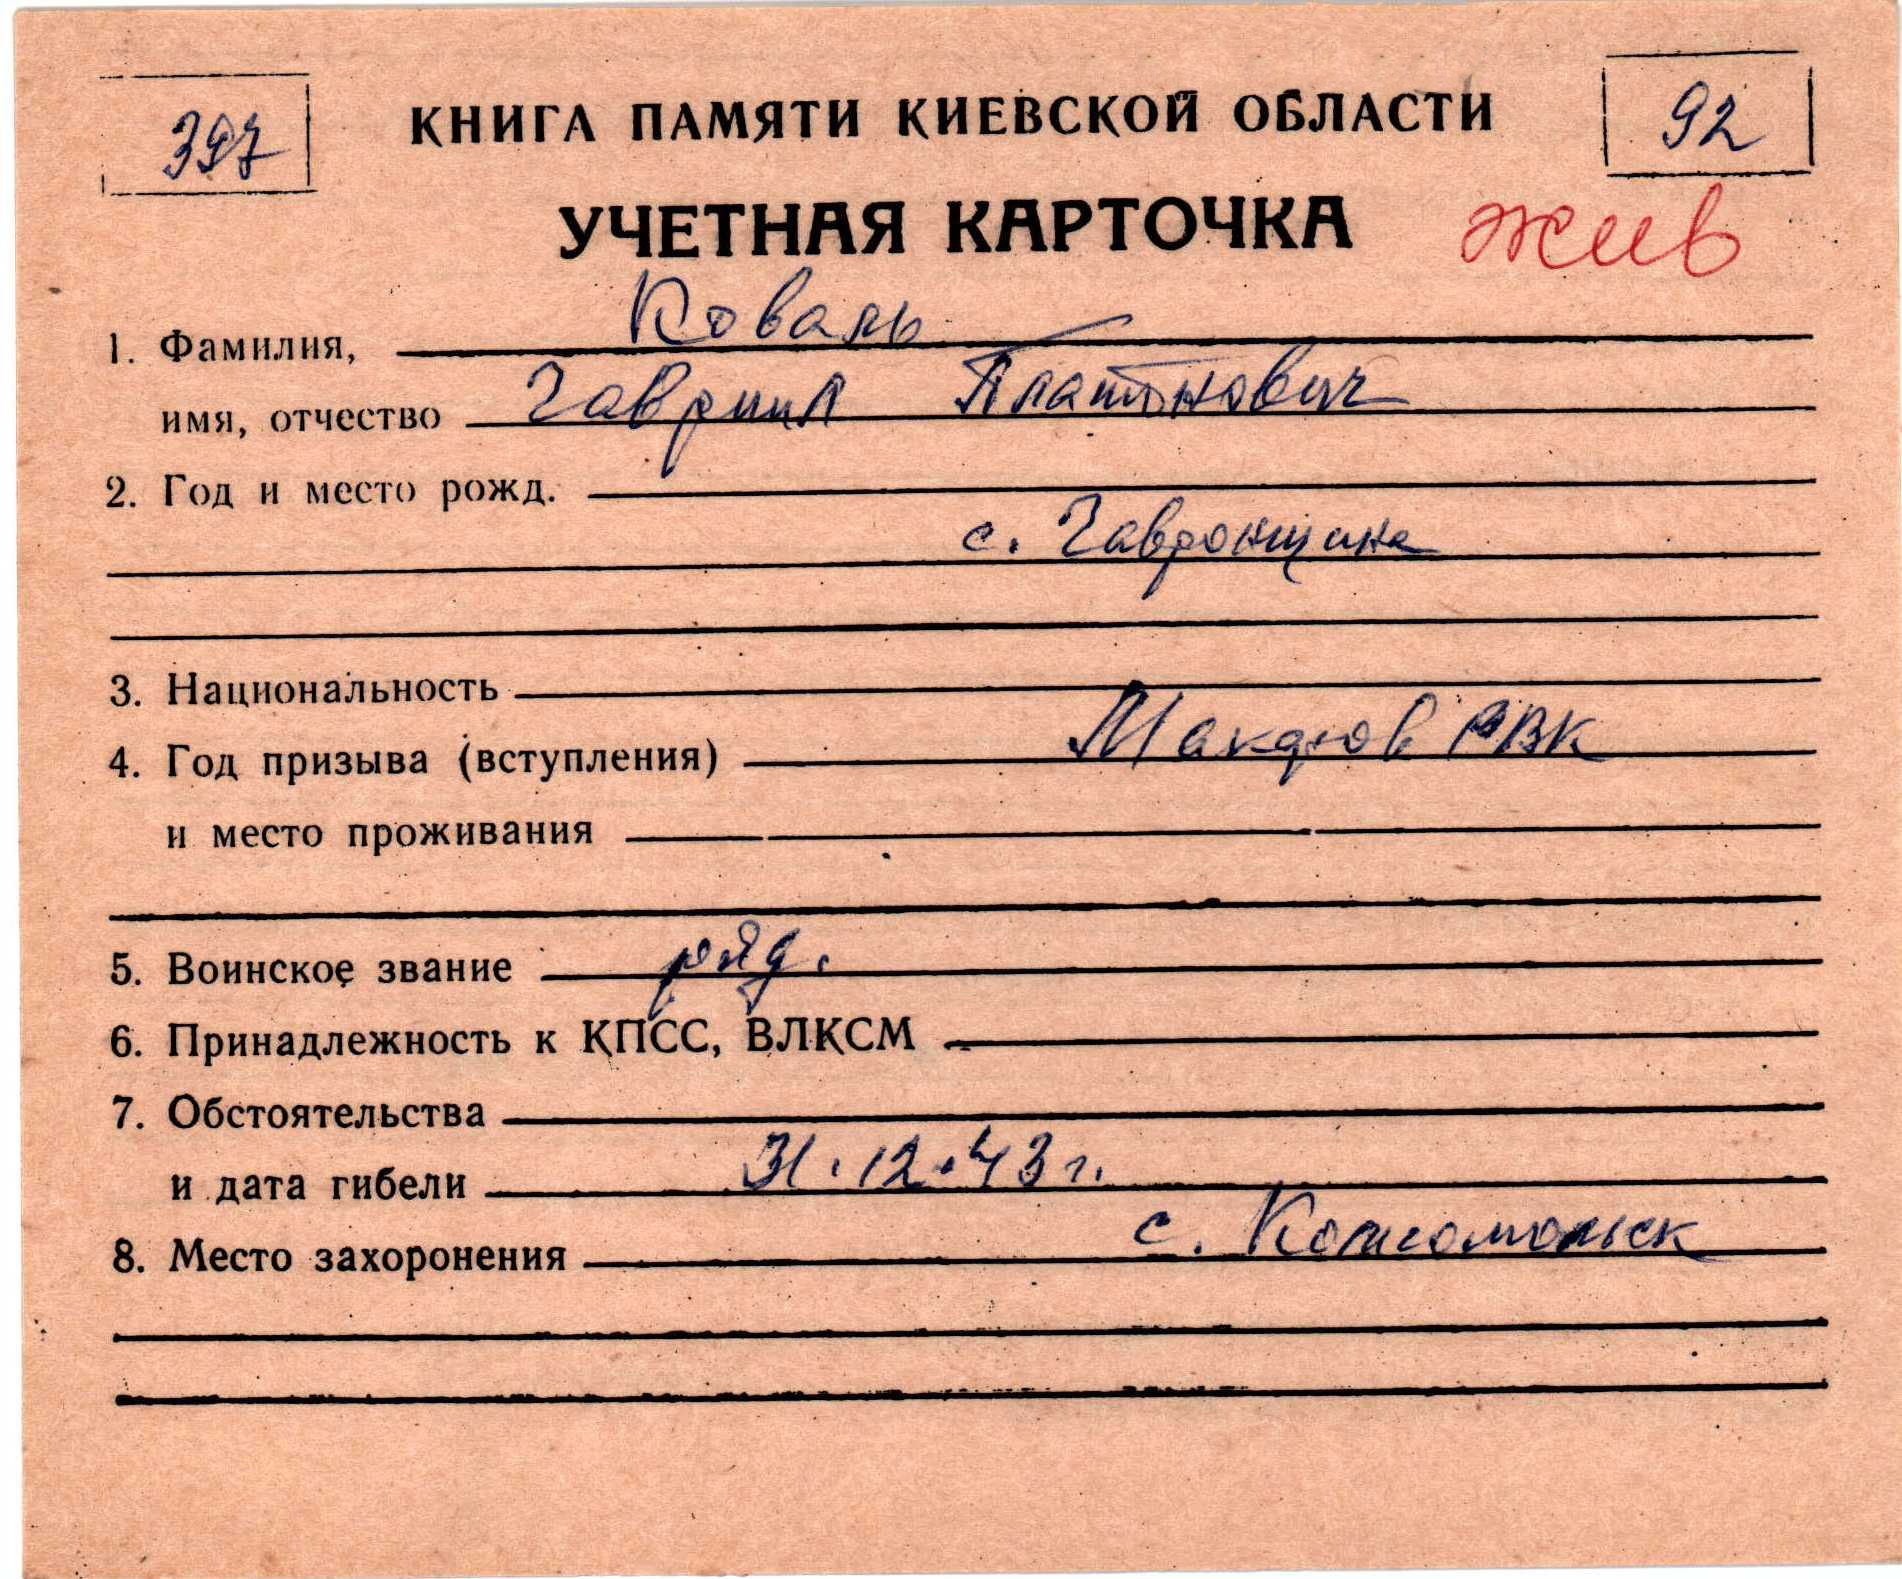 397
КНИГА ПАМЯТИ КИЕВСКОЙ ОБЛАСТИ
92
УЧЕТНАЯ КАРТОЧКА
жив
1. Фамилия, Коваль
имя, отчество Гавриил Платонович
2. Год и место рожд.
с. Гавронщина
3. Национальность
4. Год призыва (вступления) РВК
и место проживания
5. Воинское звание ряд.
6. Принадлежность к КПСС, ВЛКСМ
7. Обстоятельства
и дата гибели 31.12.43 г.
8. Место захоронения с. Комсомольск